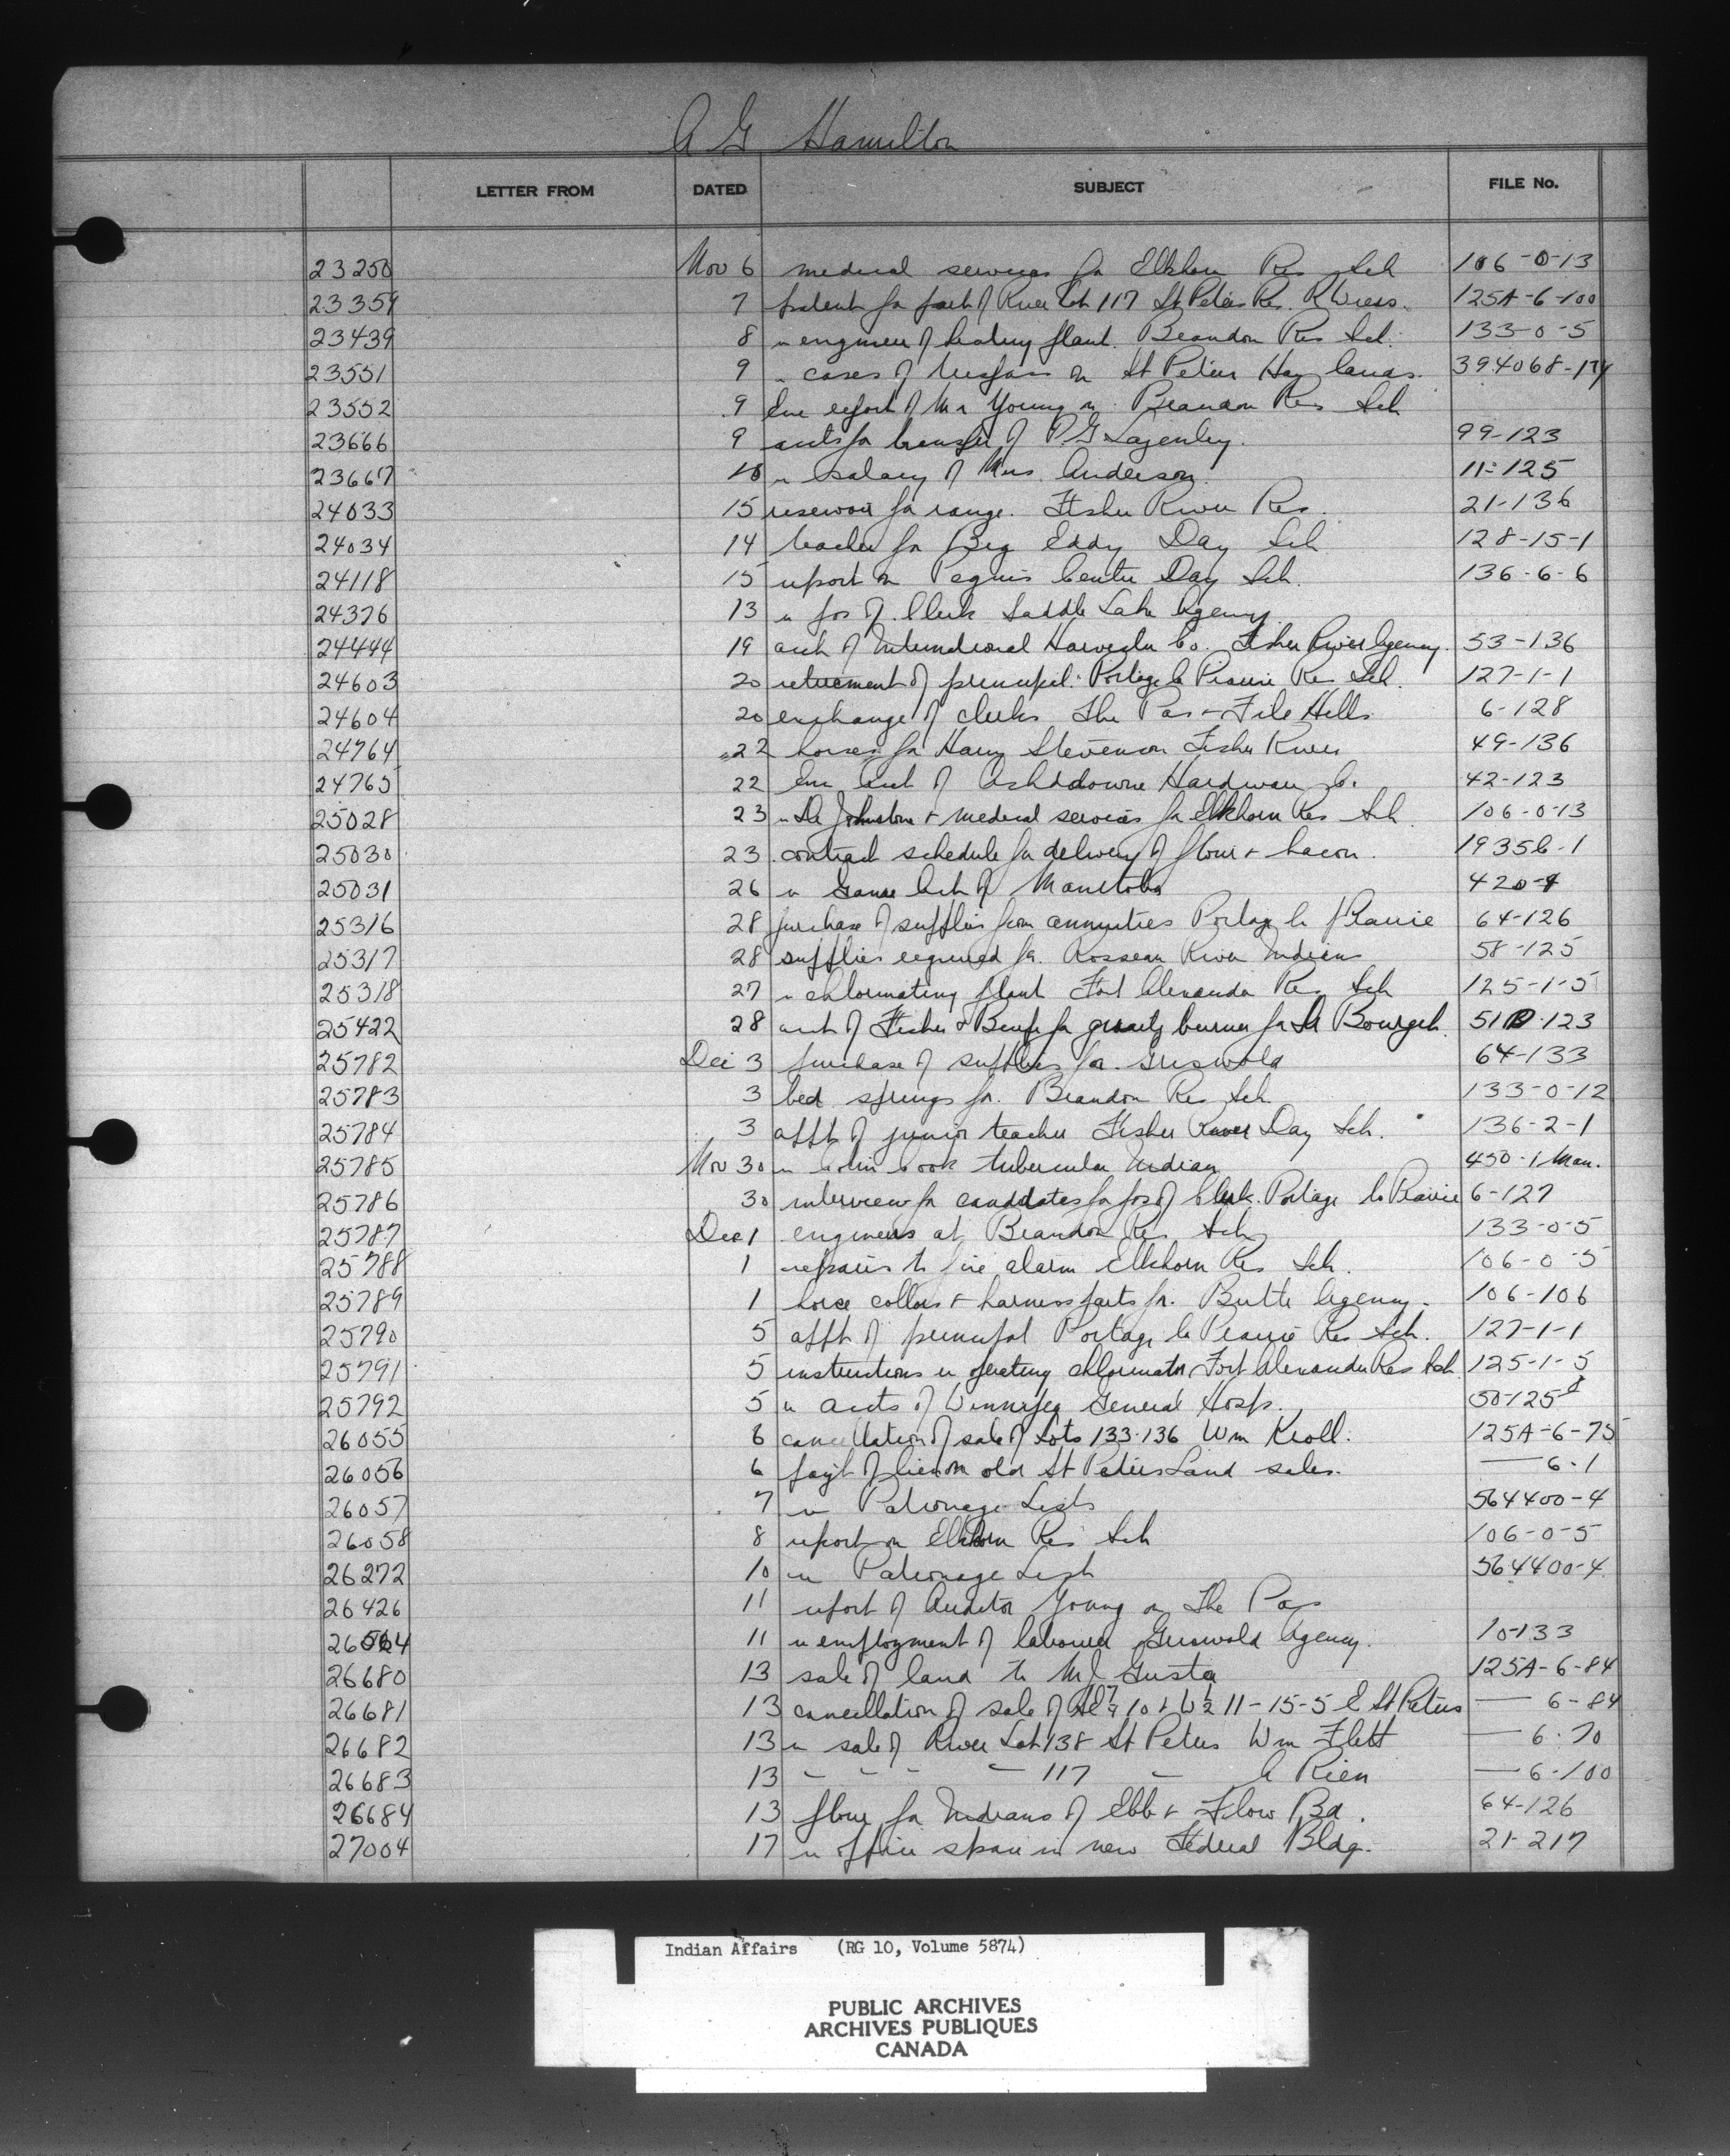 A G Hamilton
LETTER FROM DATED SUBJECT FILE No.
23250 Nov 6 medical services for Elkhorn Res Sch 106-0-13
23359 7 patent for part of River Lot 117 St Peters Res. 125A-6-100
23439 8 engineer of heating plant. Brandon Res Sch. 133-0-5
23551 9 cases of trespass on St Peters Hay lands. 394068-
23552 9 report of Mr Young on Brandon Res Sch
23666 9 accts for transfer of P.G. Lazenby. 99-123
23667 10 salary of Mrs. Anderson. 11-125
24033 15 reservoir for range. Fisher River Res. 21-136
24034 14 teacher for Big Eddy Day Sch 128-15-1
24118 15 report on Peguis Centre Day Sch. 136-6-6
24376 13 pos of Clerk Saddle Lake Agency
24444 19 acct of International Harvester Co. Fisher River Agency. 53-136
24603 20 retirement of principal. Portage la Prairie Res Sch. 127-1-1
24604 20 exchange of clerks The Pas + File Hills 6-128
24764 22 horses for Harry Stevenson Fisher River 49-136
24765 22 acct of Ashdowne Hardware Co. 42-123
25028 23 Dr Johnstone + medical services for Elkhorn Res Sch 106-0-13
25030 23 contract schedule for delivery of flour + bacon.
25031 26 Game Act of Manitoba
25316 28 purchase of supplies from annuities Portage la Prairie 64-126
25317 28 supplies required for Rosseau River Indians 58-125
25318 27 chlorinating plant Fort Alexander Res Sch 125-1-5
25422 28 acct of Fisher & for gravity burner for Dr
25782 Dec 3 purchase of supplies for Griswold 64-133
25783 3 bed springs for Brandon Res Sch. 133-0-12
25784 3 appt of junior teacher Fisher River Day Sch. 136-2-1
25785 Nov 30 Colin Cook tubercular Indian 450-1 Man.
25786 30 interview for candidates for pos of Clerk. Portage la Prairie 6-127
25787 Dec 1 engineers at Brandon Res Sch 133-0-5
25788 1 repairs to fire alarm Elkhorn Res Sch. 106-0-5
25789 1 horse collars + harness parts for Birtle Agency. 106-106
25790 5 appt of principal Portage la Prairie Res Sch. 127-1-1
25791 5 instructions operating chlorinator Fort Alexander Res Sch 125-1-5
25792 5 accts of Winnipeg General Hosp. 50-125
26055 6 cancellation of sale of Lots 133-136 Wm Kroll. 125A-6-75
26056 6 payt of lien on old St Peters Land sales. — 6-1
26057 7 Patronage Lists 564400-4
26058 8 report on Elkhorn Res Sch 106-0-5
26272 10 Patronage List 564400-4
26426 11 report of Auditor Young on The Pas
11 employment of labourer Griswold Agency. 10-133
26680 13 sale of land to M.J. 125A-6-84
26681 13 cancellation of sale of 10 + W½ 11-15-5 E St Peters — 6-84
26682 13 sale of River Lot 138 St Peters Wm Flett — 6-70
26683 13 - - - - 117 - — 6-100
26684 13 flour for Indians of Ebb + Flow Bd. 64-126
27004 17 office space in new Federal Bldg. 21-217
Indian Affairs (RG 10, Volume 5874)
PUBLIC ARCHIVES
ARCHIVES PUBLIQUES
CANADA